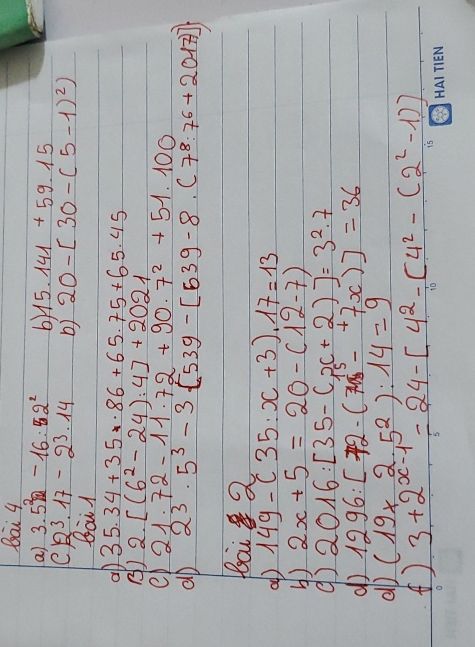 bài 4
a) 3.5² - 16.2² b) 15.141 + 59.15
c) 2³.17 - 2³.14 b) 20 - [30 - (5 - 1)²]
bài 1
a) 35.34 + 35.86 + 65.75 + 65.45
B) 2[(6² - 24):4] + 2021
c) 21.7² - 11.7² + 90.7² + 51.100
d) 2³.5³ - 3{539 - [639 - 8.(7⁸:7⁶ + 2017)]}
bài 2
a) 149 - (35.x + 3).17 = 13
b) 2x + 5 = 20 - (12 - 7)
c) 2016:[35 - (x + 2)] = 3².7
d) 1296:[ - 7x)] = 36
d) (19x 2.5²):14 = 9
f) 3 + 2x-1 = 24 - [4² - [4² - (2² - 1)]
HAI TIEN
0 5 10 15